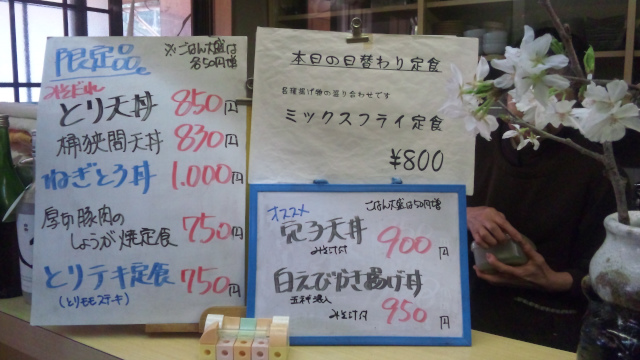 限定品。
※ごはん大盛は
各50円増
みそだれ
とり天丼 850円
桶狭間天丼 830円
ねぎとろ丼 1.000円
厚切豚肉の
しょうが焼定食 750円
とりテキ定食 750円
(とりモモステーキ)
本日の日替わり定食
各種揚げ物の盛り合わせです
ミックスフライ定食
¥800
オススメ
ごはん大盛は50円増
穴子天丼 900円
みそ汁付
白えびかき揚げ丼
みそ汁付 950円